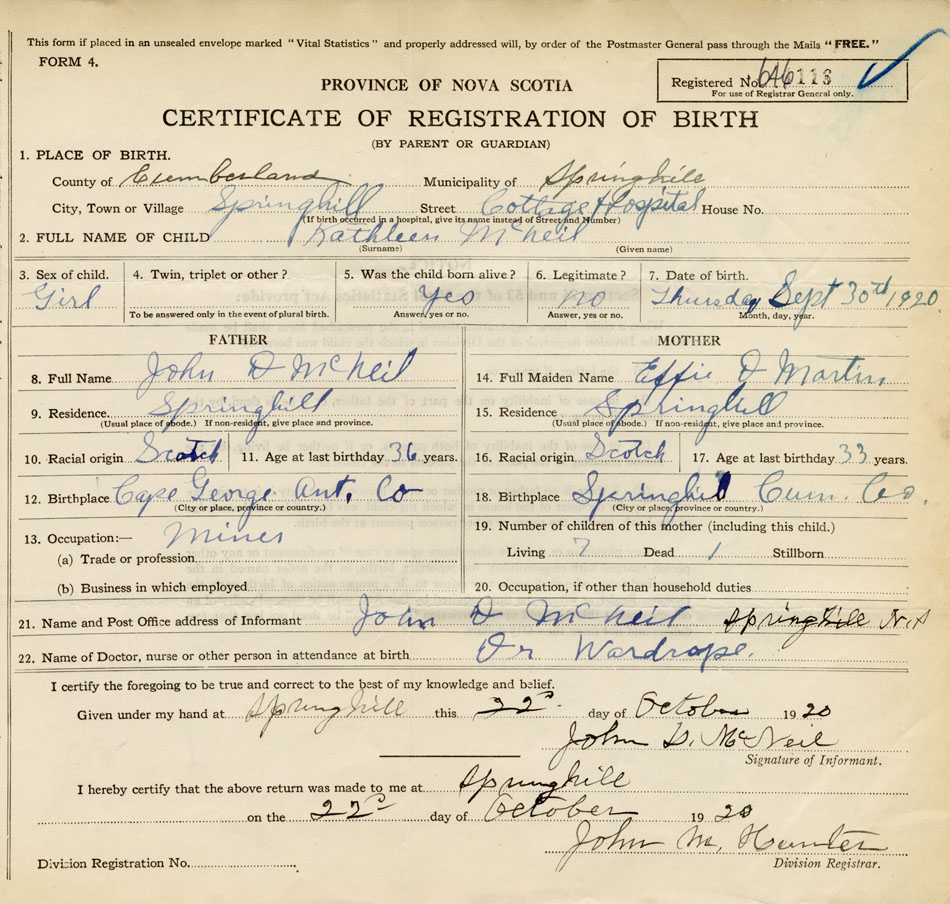 This form if placed in an unsealed envelope marked "Vital Statistics" and properly addressed will, by order of the Postmaster General pass through the Mails "FREE."
FORM 4.
Registered No. 646118
For use of Registrar General only.
PROVINCE OF NOVA SCOTIA
CERTIFICATE OF REGISTRATION OF BIRTH
(BY PARENT OR GUARDIAN)
1. PLACE OF BIRTH.
County of Cumberland Municipality of Springhill
City, Town or Village Springhill Street Cottage Hospital House No.
(If birth occurred in a hospital, give its name instead of Street and Number)
2. FULL NAME OF CHILD Kathleen McNeil
(Surname) (Given name)
3. Sex of child. 4. Twin, triplet or other? 5. Was the child born alive? 6. Legitimate? 7. Date of birth.
Girl Yes no Thursday Sept 30th 1920
To be answered only in the event of plural birth. Answer, yes or no. Answer, yes or no. Month, day, year.
FATHER MOTHER
8. Full Name John D McNeil 14. Full Maiden Name Effie D Martin
9. Residence Springhill 15. Residence Springhill
(Usual place of abode.) If non-resident, give place and province. (Usual place of abode.) If non-resident, give place and province.
10. Racial origin Scotch 11. Age at last birthday 36 years. 16. Racial origin Scotch 17. Age at last birthday 33 years.
12. Birthplace Cape George Ant. Co 18. Birthplace Springhill Cum. Co.
(City or place, province or country.) (City or place, province or country.)
13. Occupation:— Miner 19. Number of children of this mother (including this child.)
(a) Trade or profession Living 7 Dead 1 Stillborn
(b) Business in which employed 20. Occupation, if other than household duties
21. Name and Post Office address of Informant John D McNeil Springhill N.S
22. Name of Doctor, nurse or other person in attendance at birth Dr Wardrope.
I certify the foregoing to be true and correct to the best of my knowledge and belief.
Given under my hand at Springhill this 22nd day of October 1920
John D. McNeil
Signature of Informant.
I hereby certify that the above return was made to me at Springhill
on the 22nd day of October 1920
John M. Hunter
Division Registration No. Division Registrar.